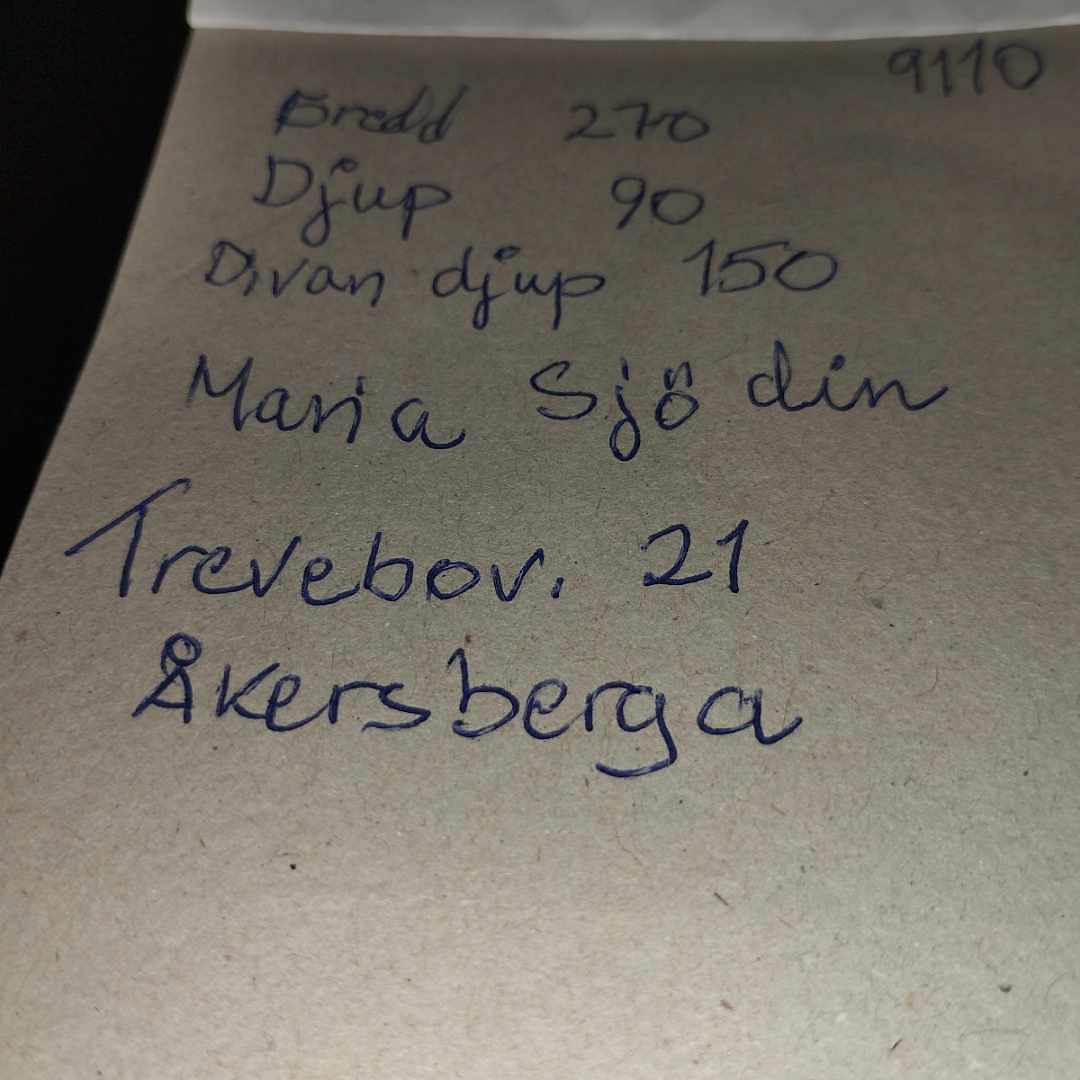 9110
Bredd 270
Djup 90
Divan djup 150
Maria Sjödin
Trevebov. 21
Åkersberga